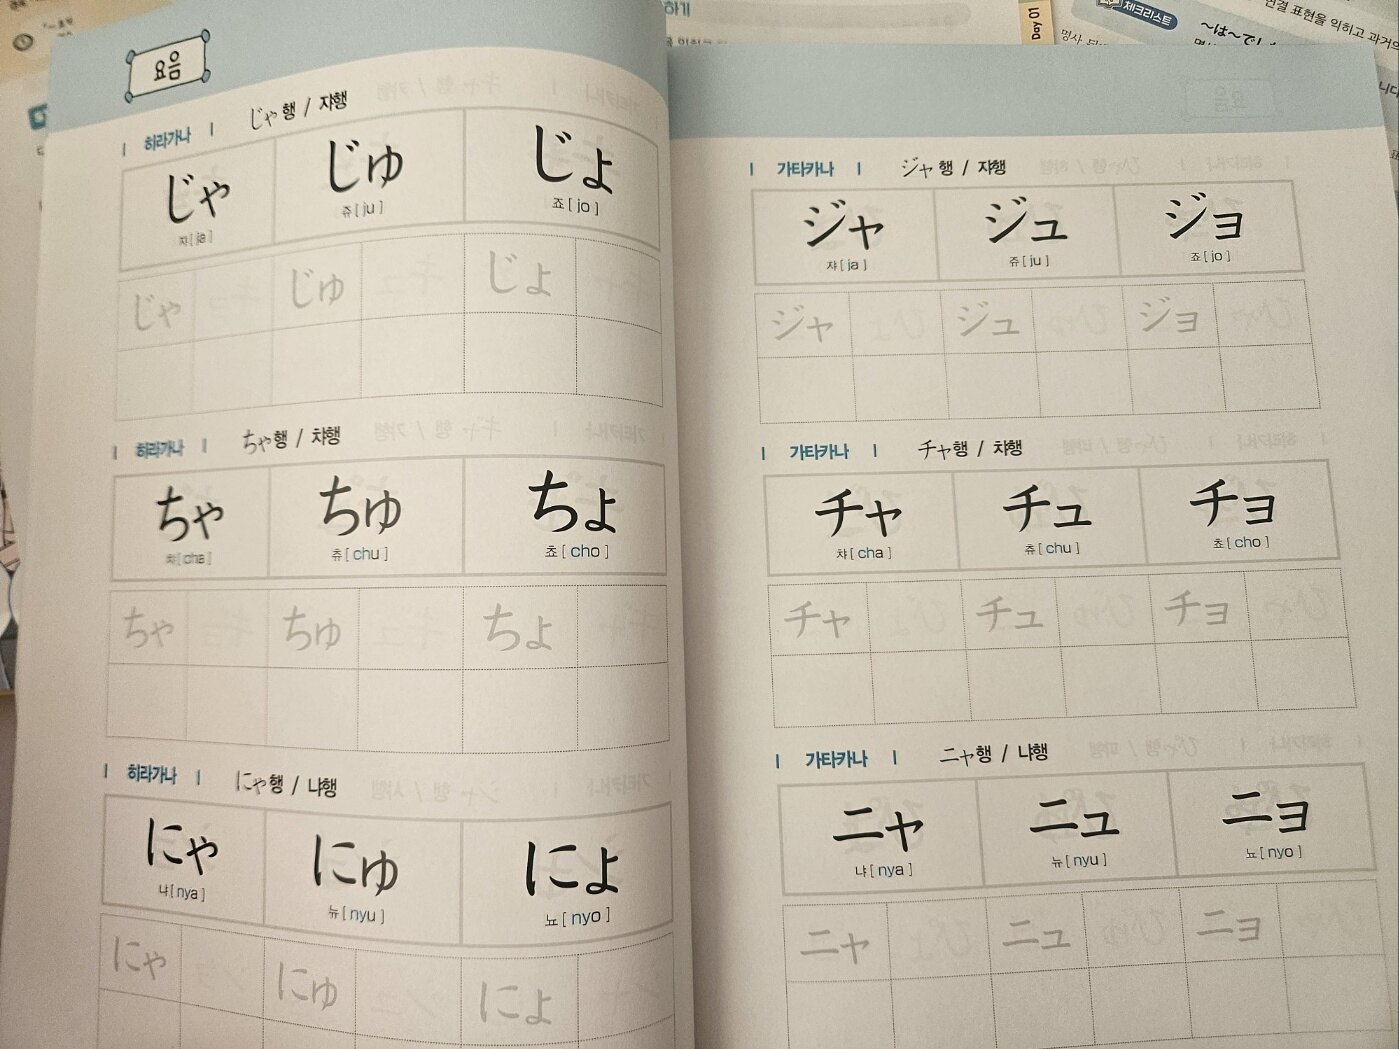 요음
히라가나 じゃ행 / 쟈행
じゃ じゅ じょ
쟈[ja] 쥬[ju] 죠[jo]
じゃ じゅ じょ
히라가나 ちゃ행 / 챠행
ちゃ ちゅ ちょ
챠[cha] 츄[chu] 쵸[cho]
ちゃ ちゅ ちょ
히라가나 にゃ행 / 냐행
にゃ にゅ にょ
냐[nya] 뉴[nyu] 뇨[nyo]
にゃ にゅ にょ
가타카나 ジャ행 / 쟈행
ジャ ジュ ジョ
쟈[ja] 쥬[ju] 죠[jo]
ジャ ジュ ジョ
가타카나 チャ행 / 챠행
チャ チュ チョ
챠[cha] 츄[chu] 쵸[cho]
チャ チュ チョ
가타카나 ニャ행 / 냐행
ニャ ニュ ニョ
냐[nya] 뉴[nyu] 뇨[nyo]
ニャ ニュ ニョ
하기
Day 01
체크리스트
연결 표현을 익히고 과거의
명사